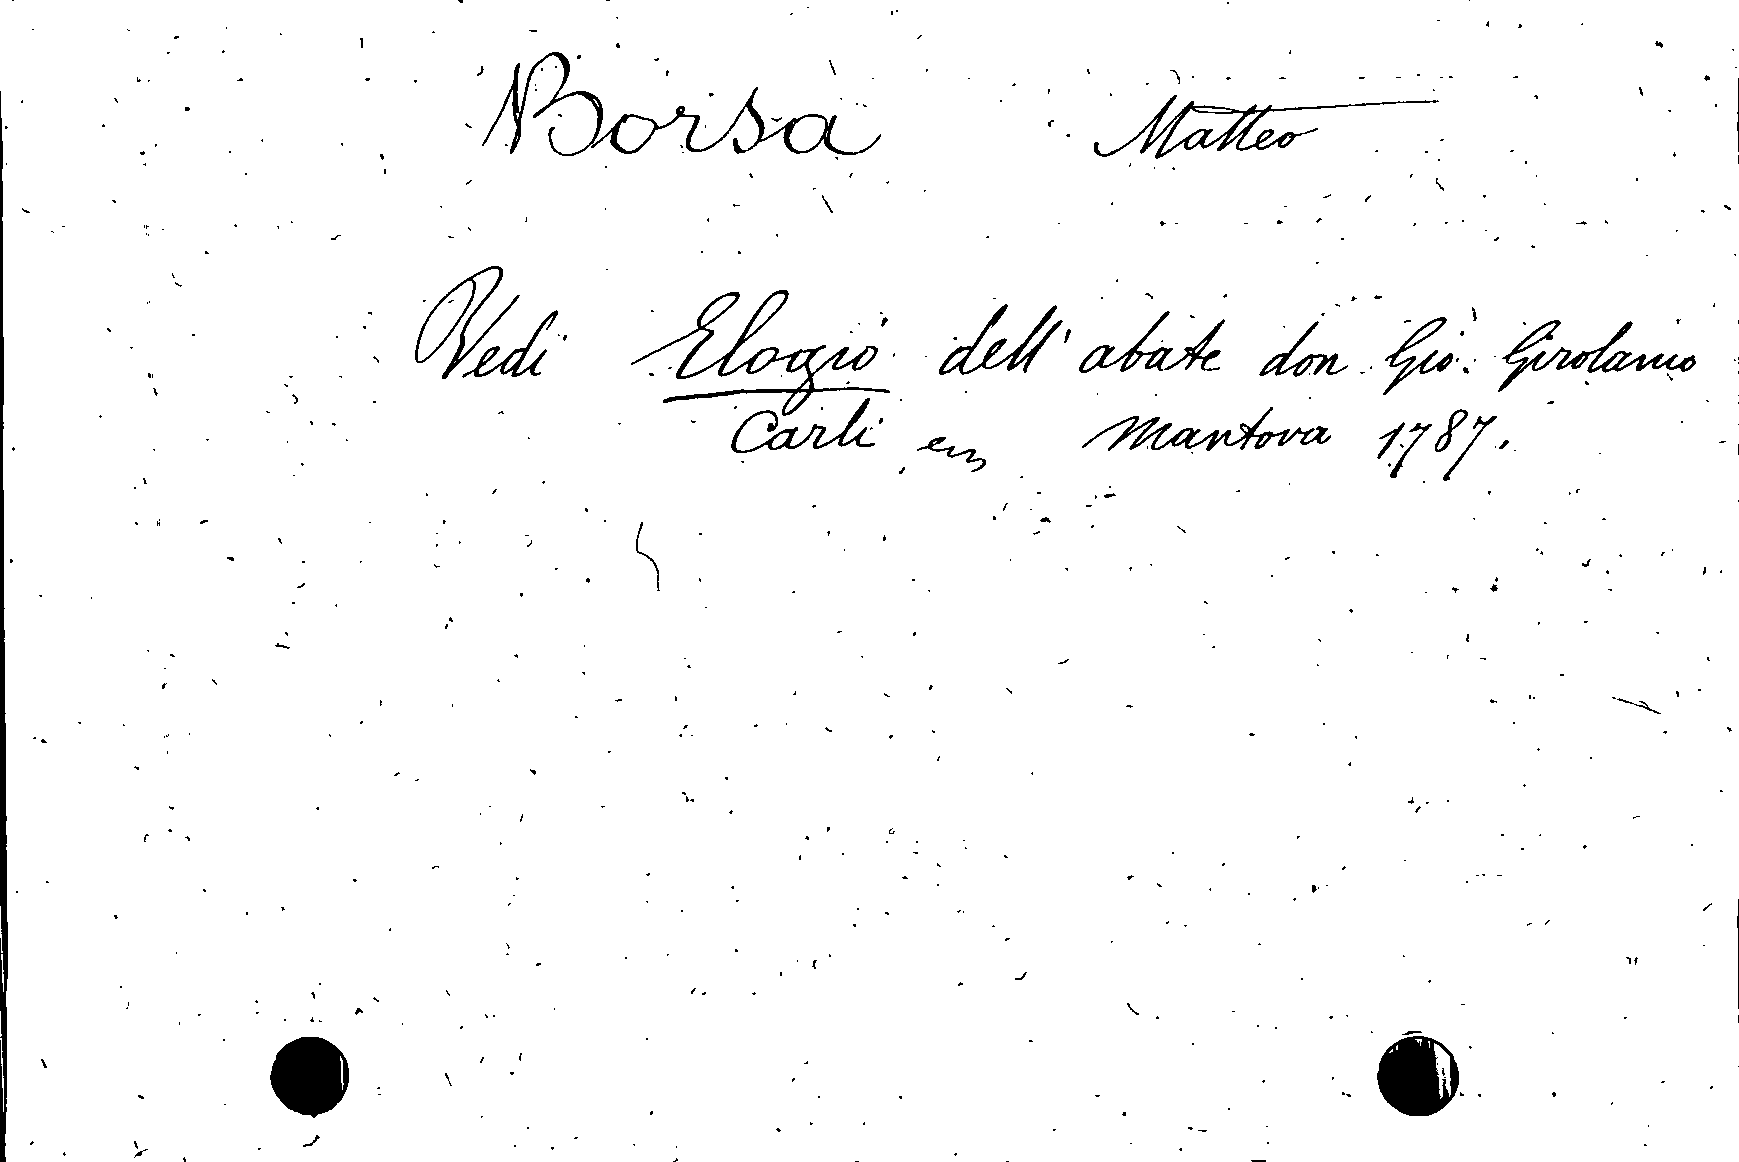 Borsa Matteo
Vedi Elogio dell' abate don Gio. Girolamo
Carli Mantova 1787.